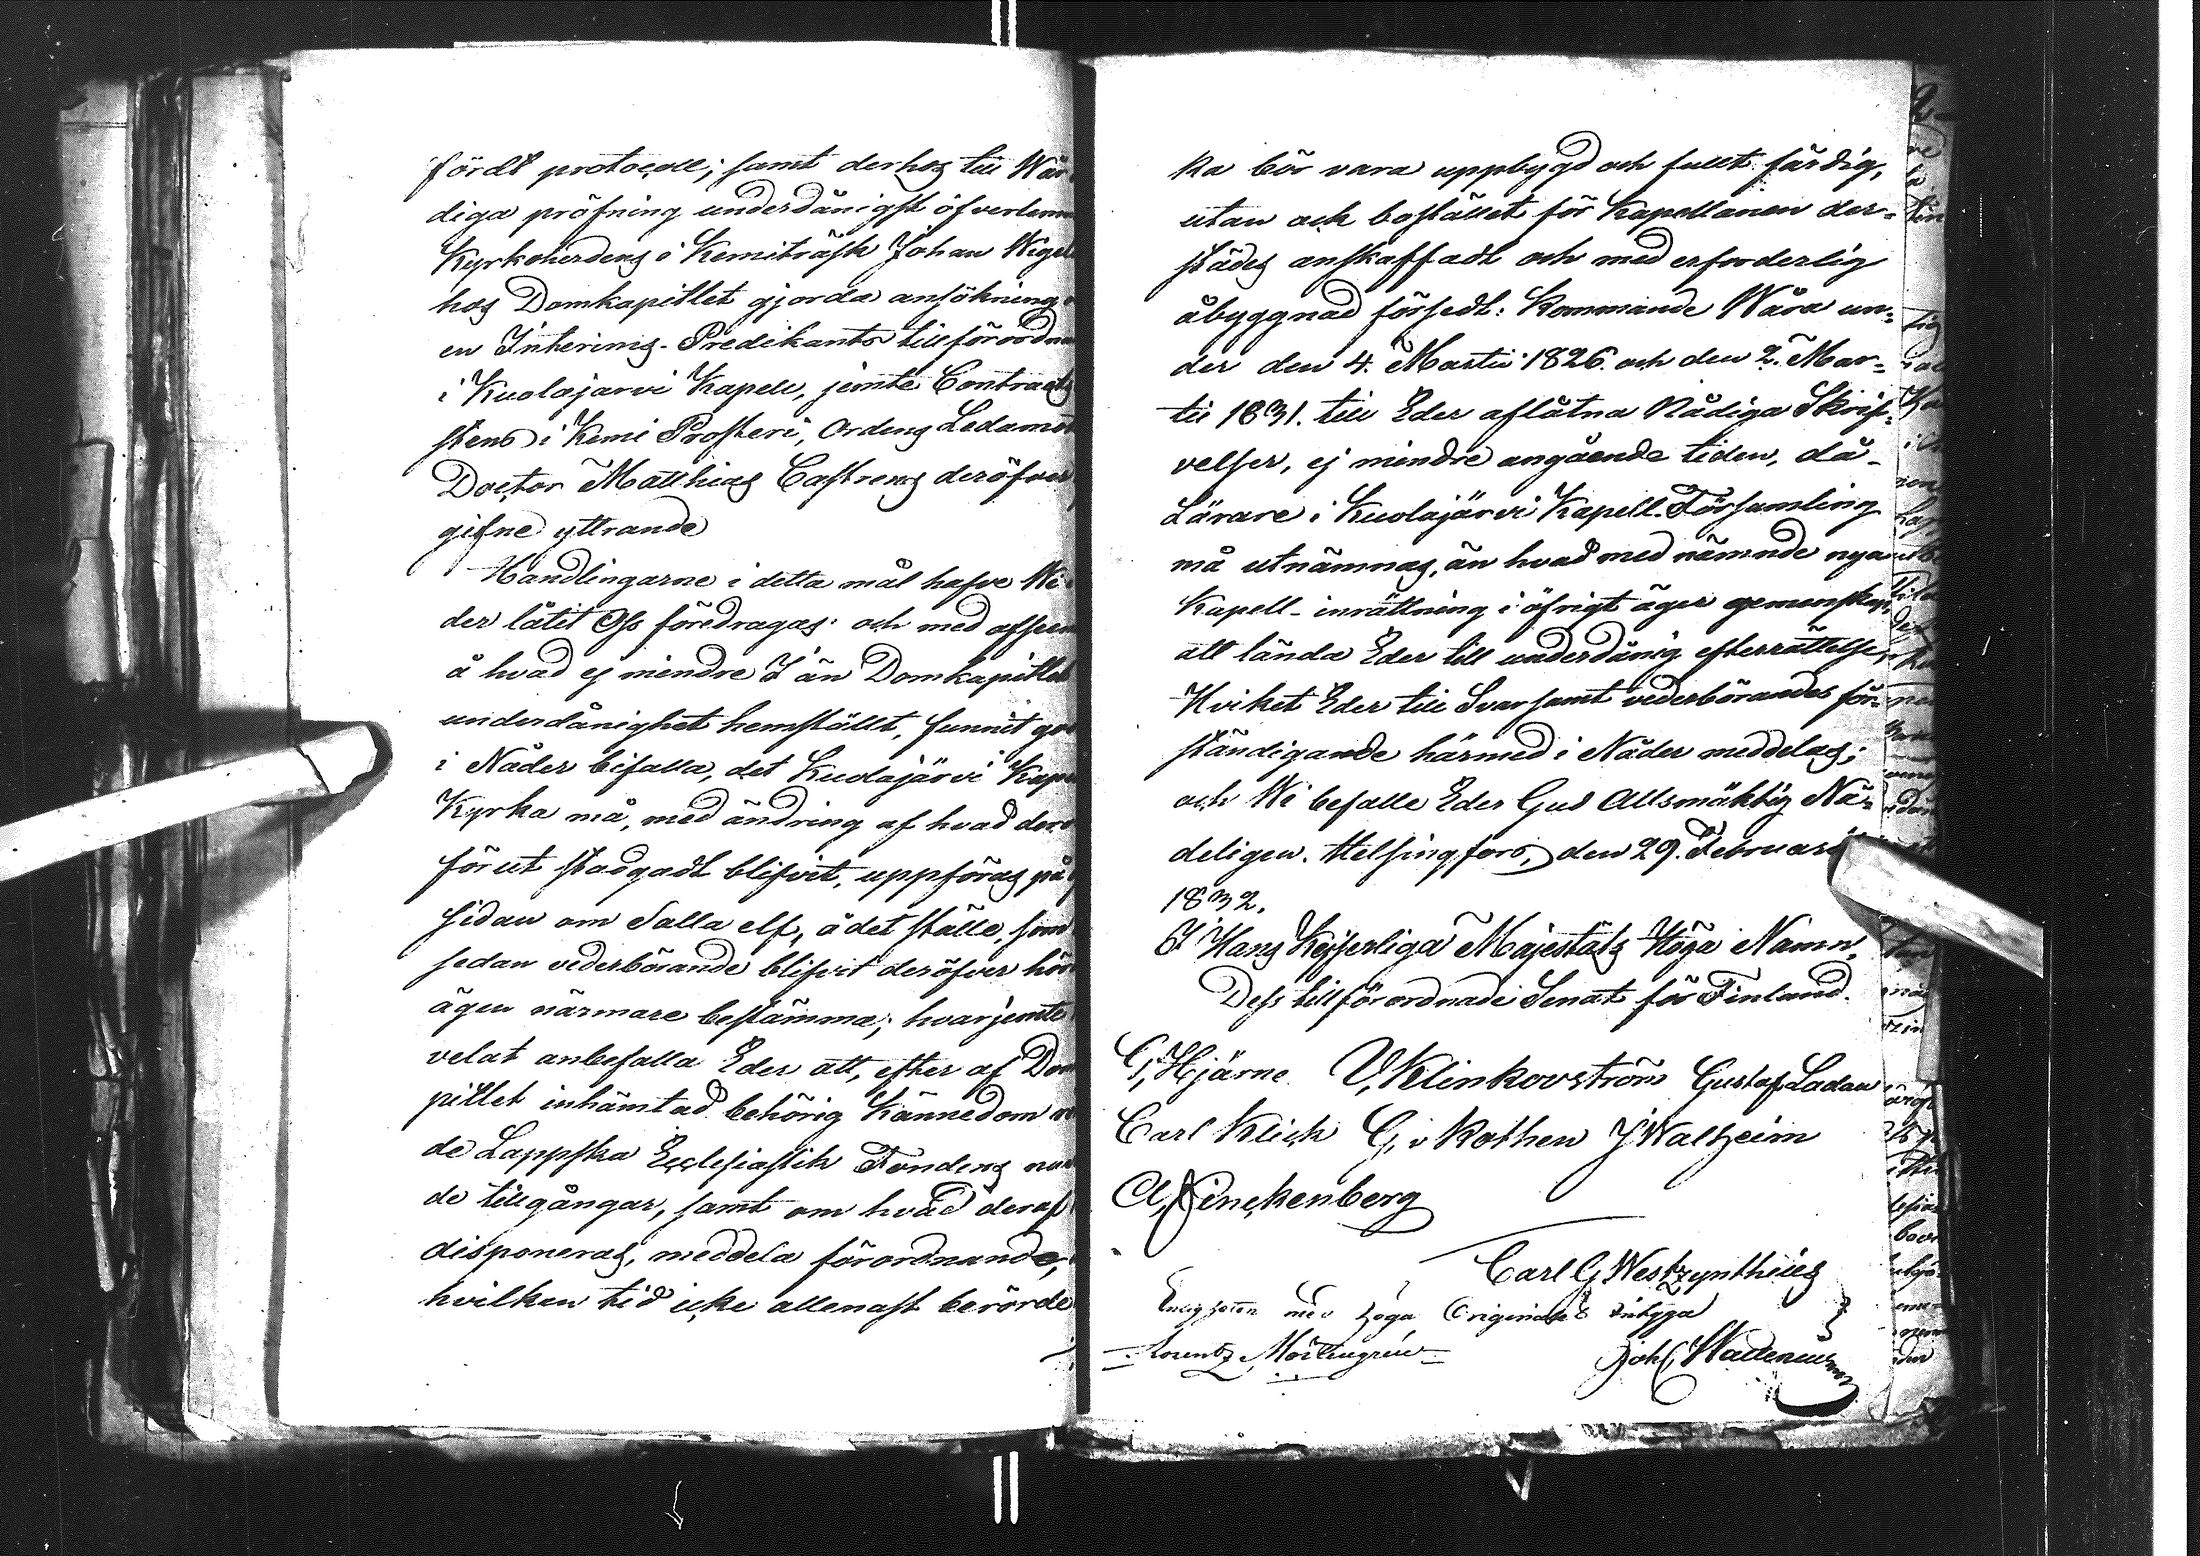 fördt protocoll; samt derhos till Wår
diga pröfning underdånigst öfverlemn
Kyrkoherdens i Kemiträsk Johan Wigel
hos Domkapitlet gjorda ansökning
en Interims-Predikants tillförordn
i Kuolajarvi Kapell, jemte Contracts
stens i Kemi Prosteri, Ordens Ledamot
Doctor Matthias Castrens deröfver
gifne yttrande
Handlingarne i detta mål hafve Wi
der låtit Oss föredragas: och med afseen
å hvad ej mindre I än Domkapitlet
underdånighet hemställt, funnit go
i Nåder bifalla, det Kuolajärvi Kape
Kyrka må, med ändring af hvad der
förut stadgadt blifvit, uppföras på
sidan om Salla elf, å det ställe, som
sedan vederbörande blifvit deröfver hör
ägen närmare bestämma; hvarjemte
velat anbefalla Eder att, efter af Dom
pitlet inhämtad behörig kännedom
de Lappska Ecclesiastik Fondens
de tillgångar, samt om hvad deraf
disponeras, meddela förordnande,
hvilken tid icke allenast berörde
ka bör vara uppbygd och fullt färdig,
utan ock bostället för Kapellanen der-
städes anskaffadt och med erforderlig
åbyggnad försedt: Kommande Wåra un-
der den 4. Martii 1826. och den 2. Mar-
tii 1831. till Eder aflåtna Nådiga Skrif-
velser, ej mindre angående tiden, då
Lärare i Kuolajärvi Kapell-Församling
må utnämnas, än hvad med nämnde nya
Kapell-inrättning i öfrigt äger gemenskap,
att lända Eder till underdånig efterrättelse
Hvilket Eder till Svar samt vederbörandes för-
ständigande härmed i Nåder meddelas;
och Wi befalle Eder Gud Allsmäktig Nå-
deligen. Helsingfors, den 29. Februarii
1832.
I Hans Kejserliga Majestäts Höga Namn,
Dess tillförordnade Senat för Finland.
G, Hjärne V, Klinkovström Gustaf Ladau
Carl Klick G, v Kothen J Walheim
A, Pinckenberg
Carl G Westzynthius
Enligheten med höga Originalet intyga
Lorentz Joh. Wallenius